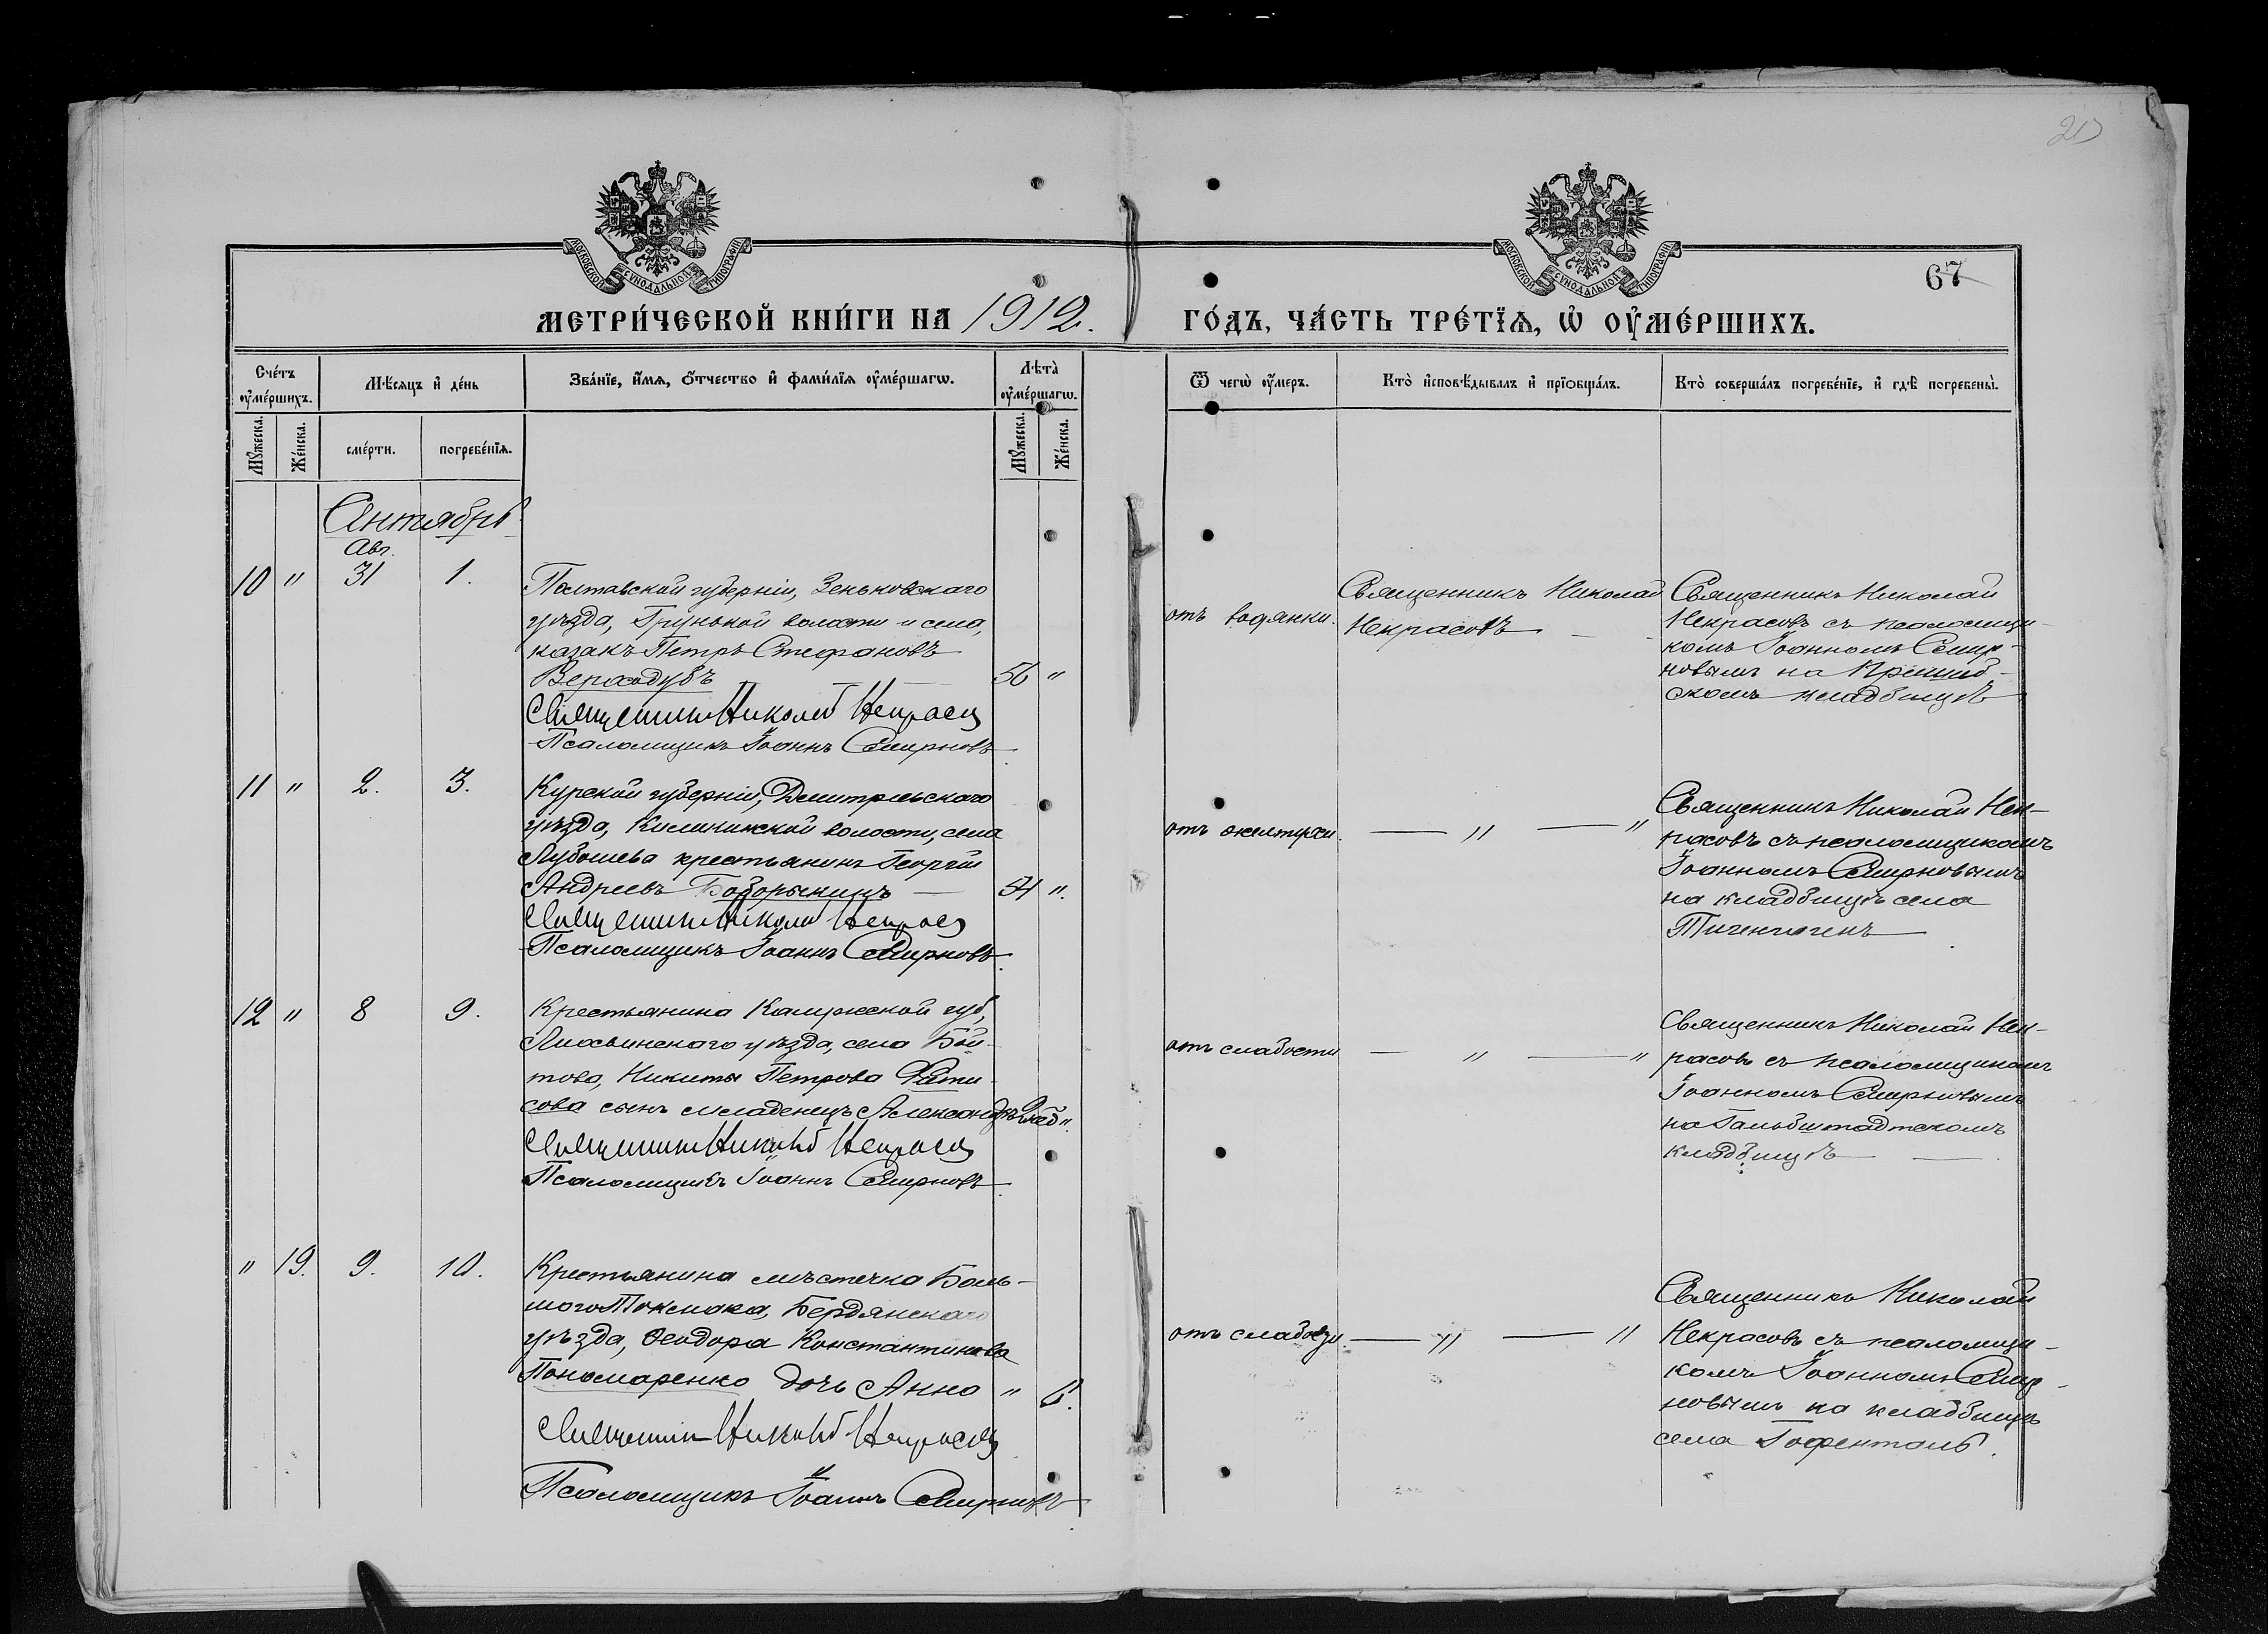 213
МОСКОВСКОЙ СѴНОДАЛЬНОЙ ТИПОГРАФІИ
МОСКОВСКОЙ СѴНОДАЛЬНОЙ ТИПОГРАФІИ
67
МЕТРИ́ЧЕСКОЙ КНИ́ГИ НА 1912. ГО́ДЪ, ЧА́СТЬ ТРЕ́ТЇѦ, Ѡ҆ ОУ҆МЕ́РШИХЪ.
Сче́тъ оу҆ме́ршихъ.
Мѣ́сяцъ и҆ де́нь
Зва́нїе, и҆́мѧ, ѻ҆́тчество и҆ фами́лїѧ оу҆ме́ршагѡ.
Лѣта̀ оу҆ме́ршагѡ.
Ѿ чегѡ̀ оу҆́меръ.
Кто̀ и҆сповѣ́дывалъ и҆ прїобща́лъ.
Кто̀ соверша́лъ погребе́нїе, и҆ гдѣ̀ погребены̀.
Мꙋ́жеска.
Же́нска.
сме́рти.
погребе́нїѧ.
Мꙋ́жеска.
Же́нска.
Сентябрь
Авг.
10 " 31 1.
Полтавской губерніи, Зеньковскаго
уѣзда, Грунской волости и села,
казакъ Петръ Стефановъ
Верходубъ 56 "
Священникъ Николай Некрасовъ
Псаломщикъ Іоаннъ Смирновъ
отъ водянки.
Священникъ Николай
Некрасовъ
Священникъ Николай
Некрасовъ съ псаломщи-
комъ Іоанномъ Смир-
новымъ на
скомъ кладбищѣ
11 " 2. 3.
Курской губерніи, Дмитріевскаго
уѣзда, волости, села
Лубошева крестьянинъ Георгій
Андреевъ Боборыкинъ 54 ".
Священникъ Николай Некрасовъ
Псаломщикъ Іоаннъ Смирновъ.
отъ желтухи. " "
Священникъ Николай Нек-
расовъ съ псаломщикомъ
Іоанномъ Смирновымъ
на кладбищѣ села
Тигенгагенъ
12 " 8 9.
Крестьянина Калужской губ,
уѣзда, села
тово, Никиты Петрова
сова сынъ младенецъ Александръ ".
Священникъ Николай Некрасовъ
Псаломщикъ Іоаннъ Смирновъ
отъ слабости " "
Священникъ Николай Нек-
расовъ съ псаломщикомъ
Іоанномъ Смирновымъ
на Гальбштадтскомъ
кладбищѣ
" 19. 9. 10.
Крестьянина мѣстечка Боль-
шого Токмака, Бердянскаго
уѣзда, Ѳеодора Константинова
Пономаренко дочь Анна "
Священникъ Николай Некрасовъ
Псаломщикъ Іоаннъ Смирновъ
отъ слабости. " "
Священникъ Николай
Некрасовъ съ псаломщи-
комъ Іоанномъ Смир-
новымъ на кладбищѣ
села Гофенталь.